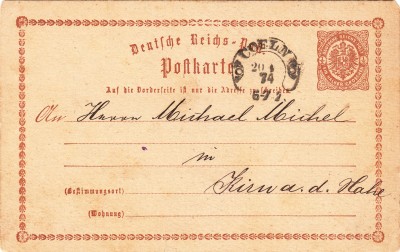 Deutsche Reichs-Post
COELN
20 4
74
6-7
Postkarte
Auf die Vorderseite ist nur die Adresse zu schreiben
An Herrn Michael Michel
in
Kirn a. d. Nahe
(Bestimmungsort)
(Wohnung)